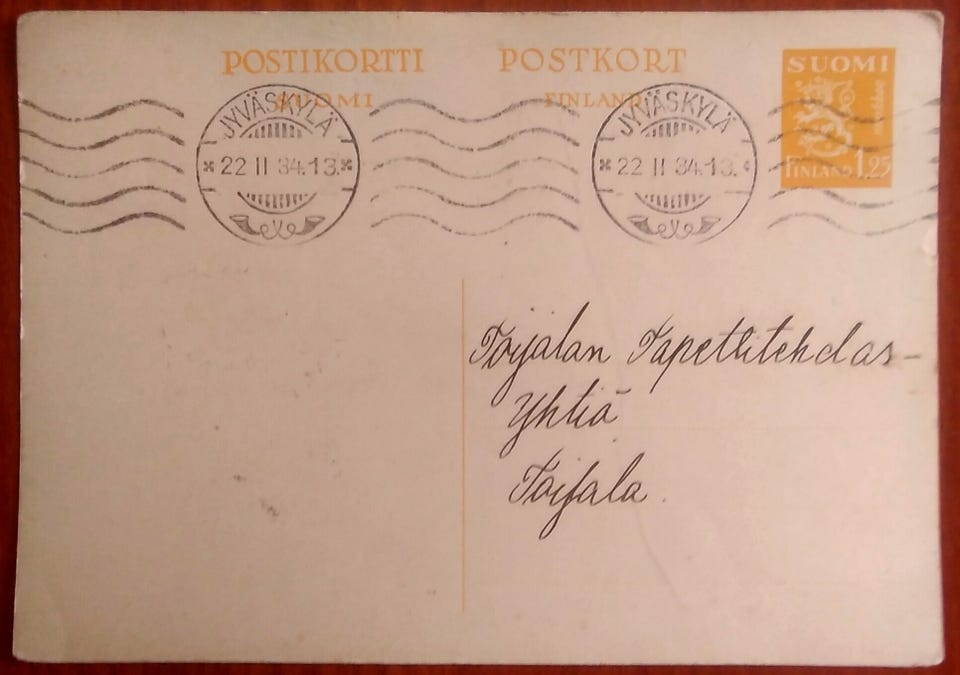 POSTIKORTTI POSTKORT
SUOMI FINLAND
SUOMI
FINLAND 1,25
JYVÄSKYLÄ
22 II 34.13.
JYVÄSKYLÄ
22 II 34.13.
Toijalan Tapettitehdas-
Yhtiö
Toijala.